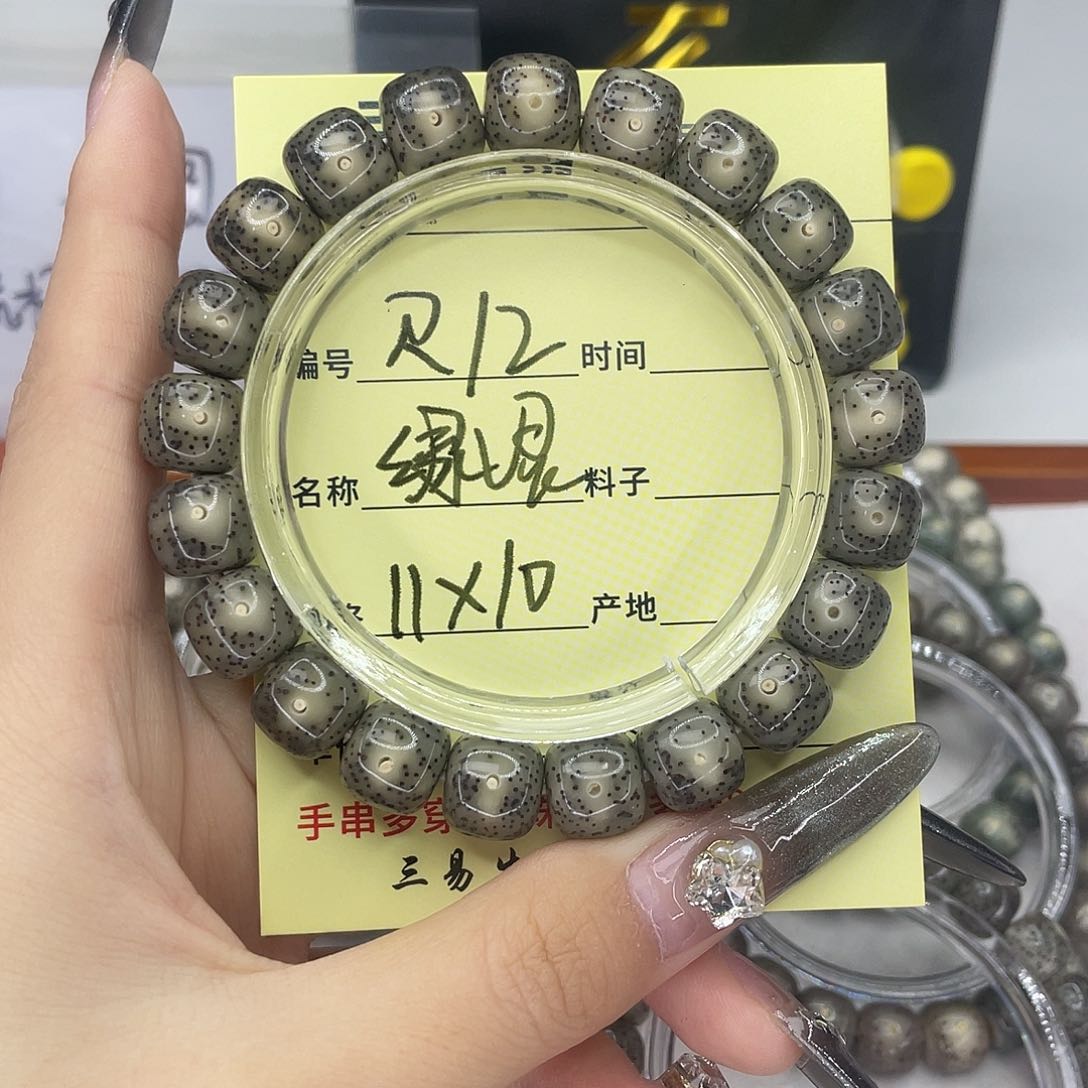 编号 R12 时间
名称 绣娘 料子
11×10 产地
手串多穿
三易